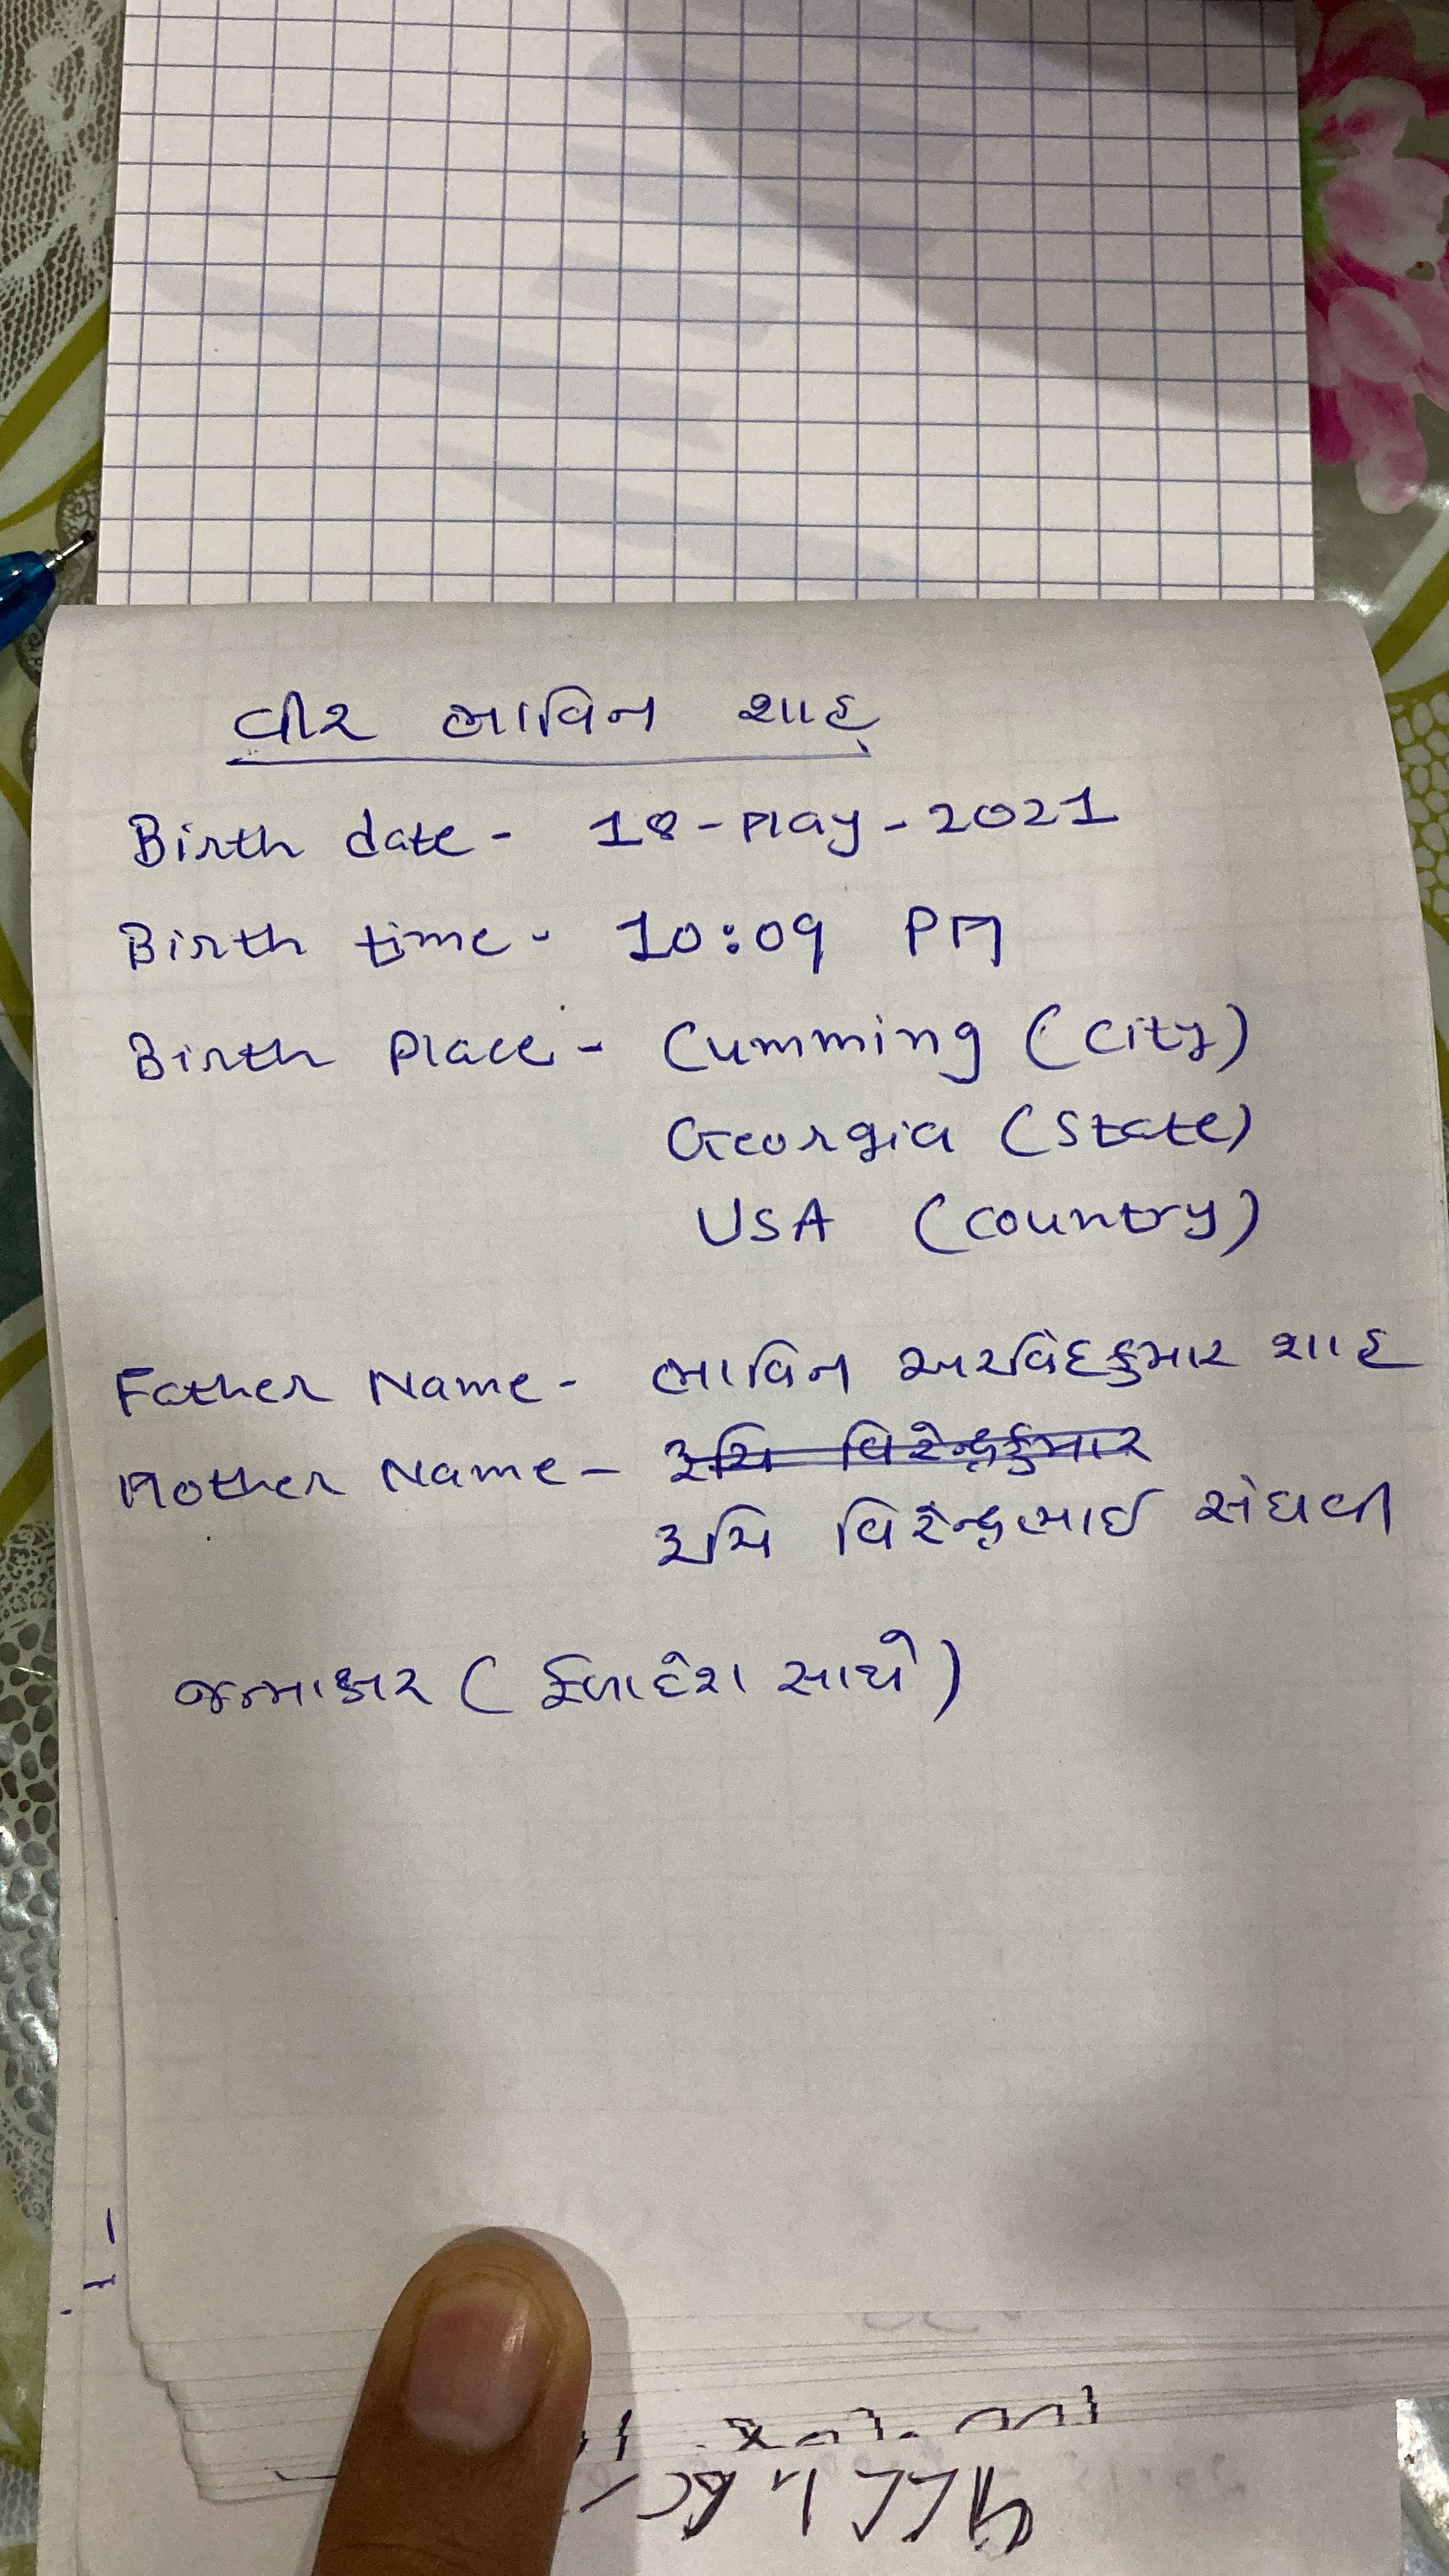 વીર ભાવિન શાહ
Birth date - 18 - May - 2021
Birth time - 10:09 PM
Birth Place - Cumming (City)
Georgia (State)
USA (Country)
Father Name - ભાવિન અરવિંદકુમાર શાહ
Mother Name - રૂચિ વિરેન્દ્રકુમાર
રૂચિ વિરેન્દ્રભાઈ સંઘવી
જન્માક્ષર ( ફળાદેશ સાથે )